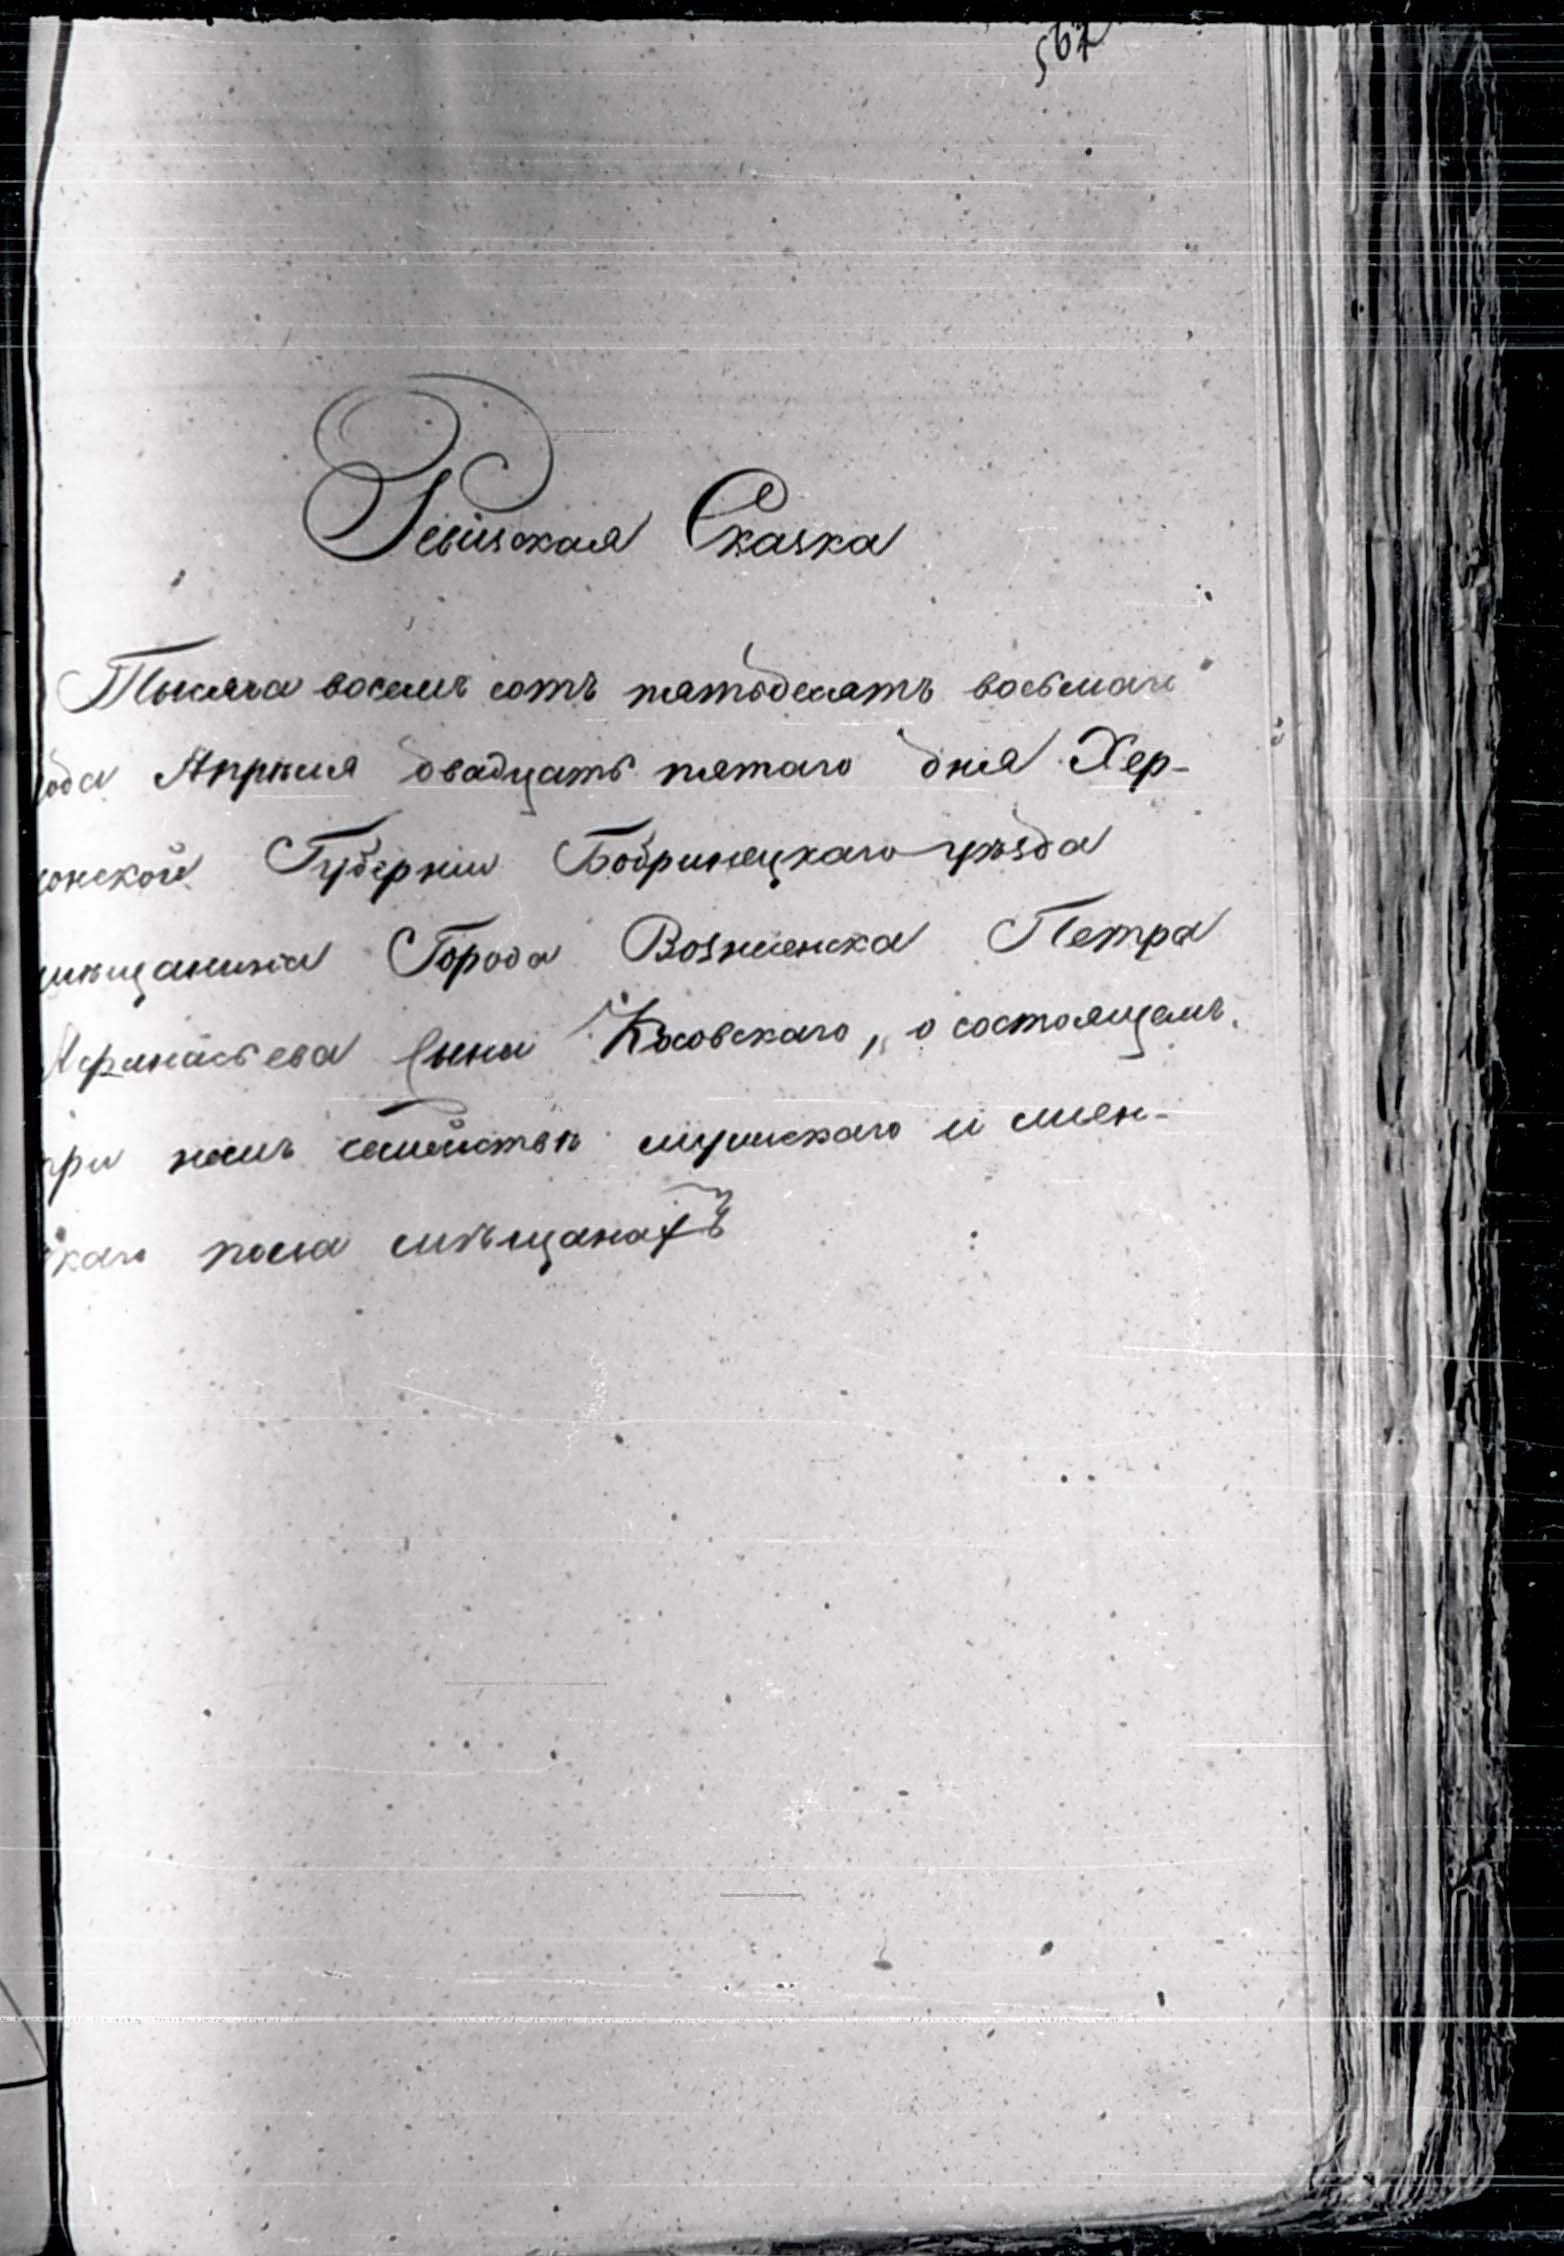 567
Ревизская Сказка
Тысяча восемь сотъ пятьдесятъ восьмаго
года Апрѣля двадцать пятаго дня Хер-
сонской Губерніи Бобринецкаго уѣзда
мѣщанина Города Вознесенска Петра
Афанасьева Сына Косовскаго, о состоящемъ
при немъ семействѣ мужскаго и жен-
скаго пола мѣщанахъ